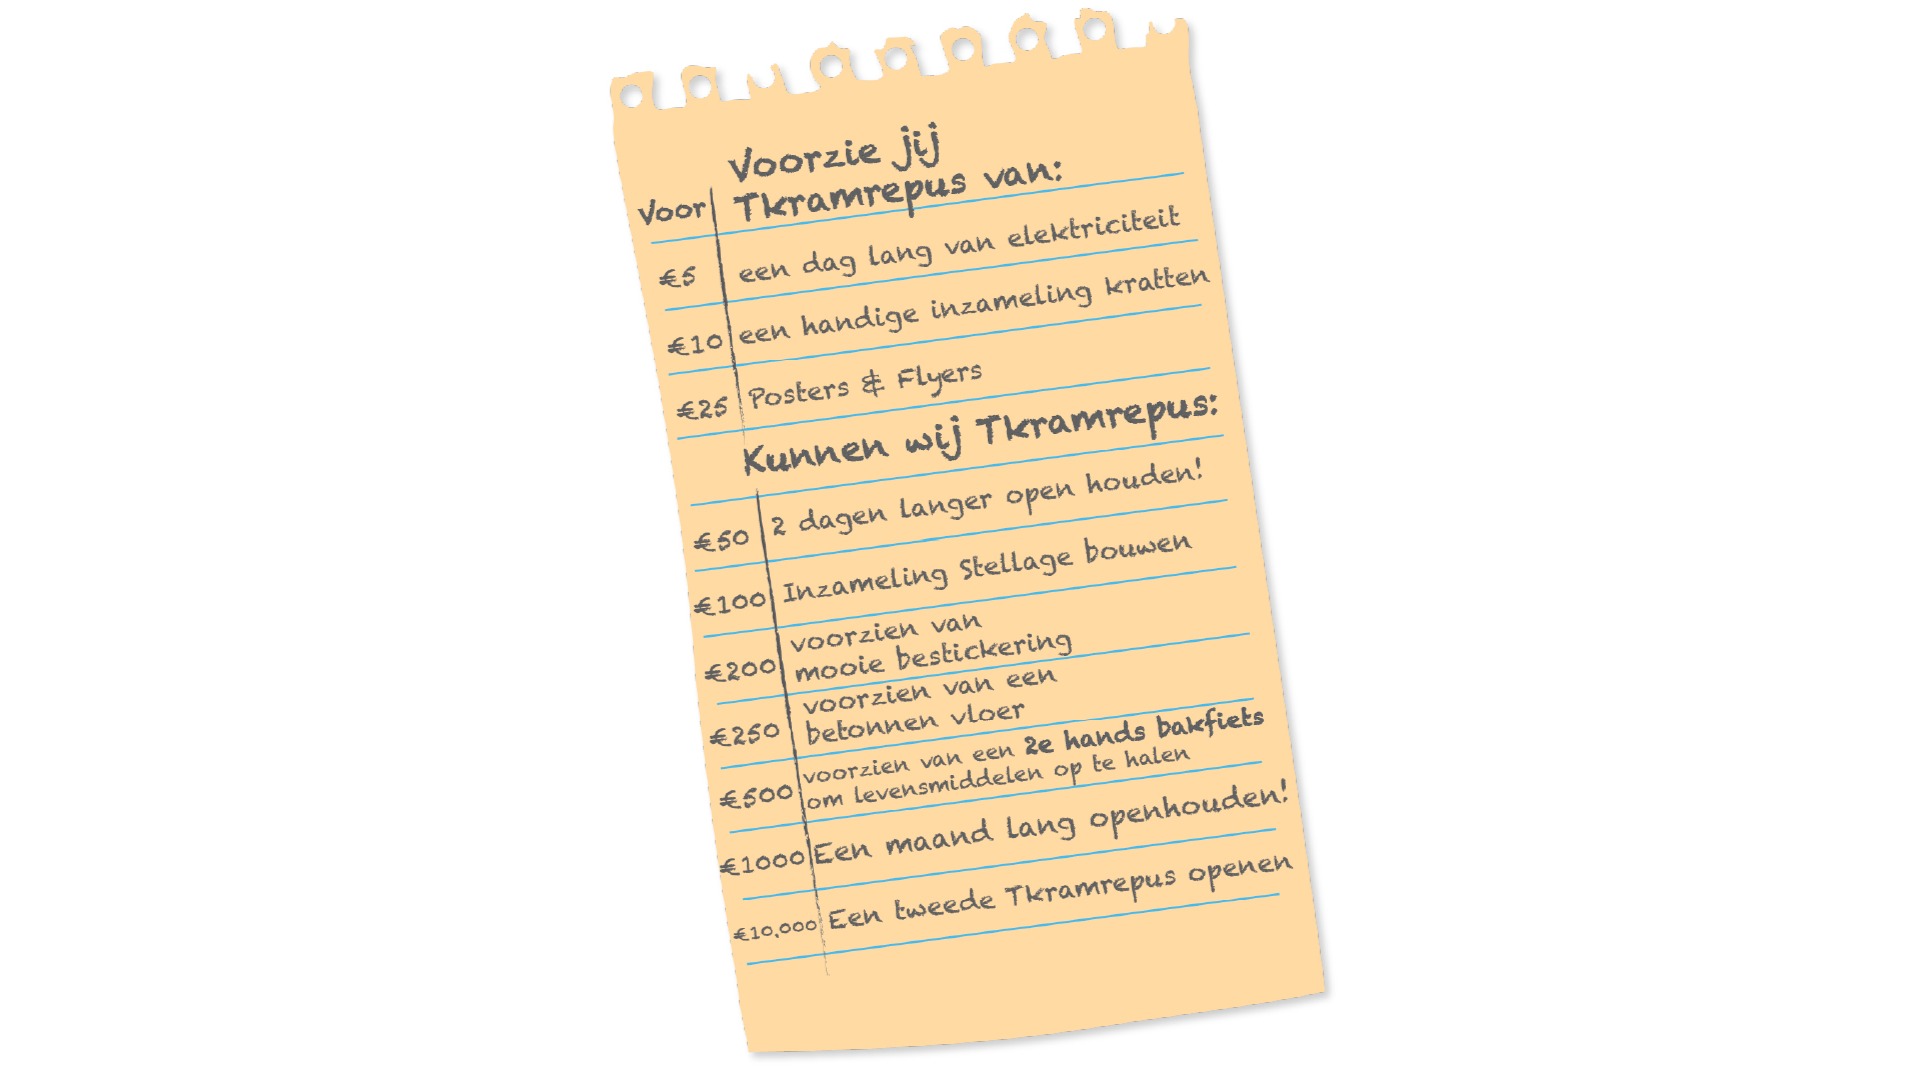 Voorzie jij
Voor Tkramrepus van:
€5 een dag lang van elektriciteit
€10 een handige inzameling kratten
€25 Posters & Flyers
Kunnen wij Tkramrepus:
€50 2 dagen langer open houden!
€100 Inzameling Stellage bouwen
€200 voorzien van
mooie bestickering
€250 voorzien van een
betonnen vloer
€500 voorzien van een 2e hands bakfiets
om levensmiddelen op te halen
€1000 Een maand lang openhouden!
€10,000 Een tweede Tkramrepus openen